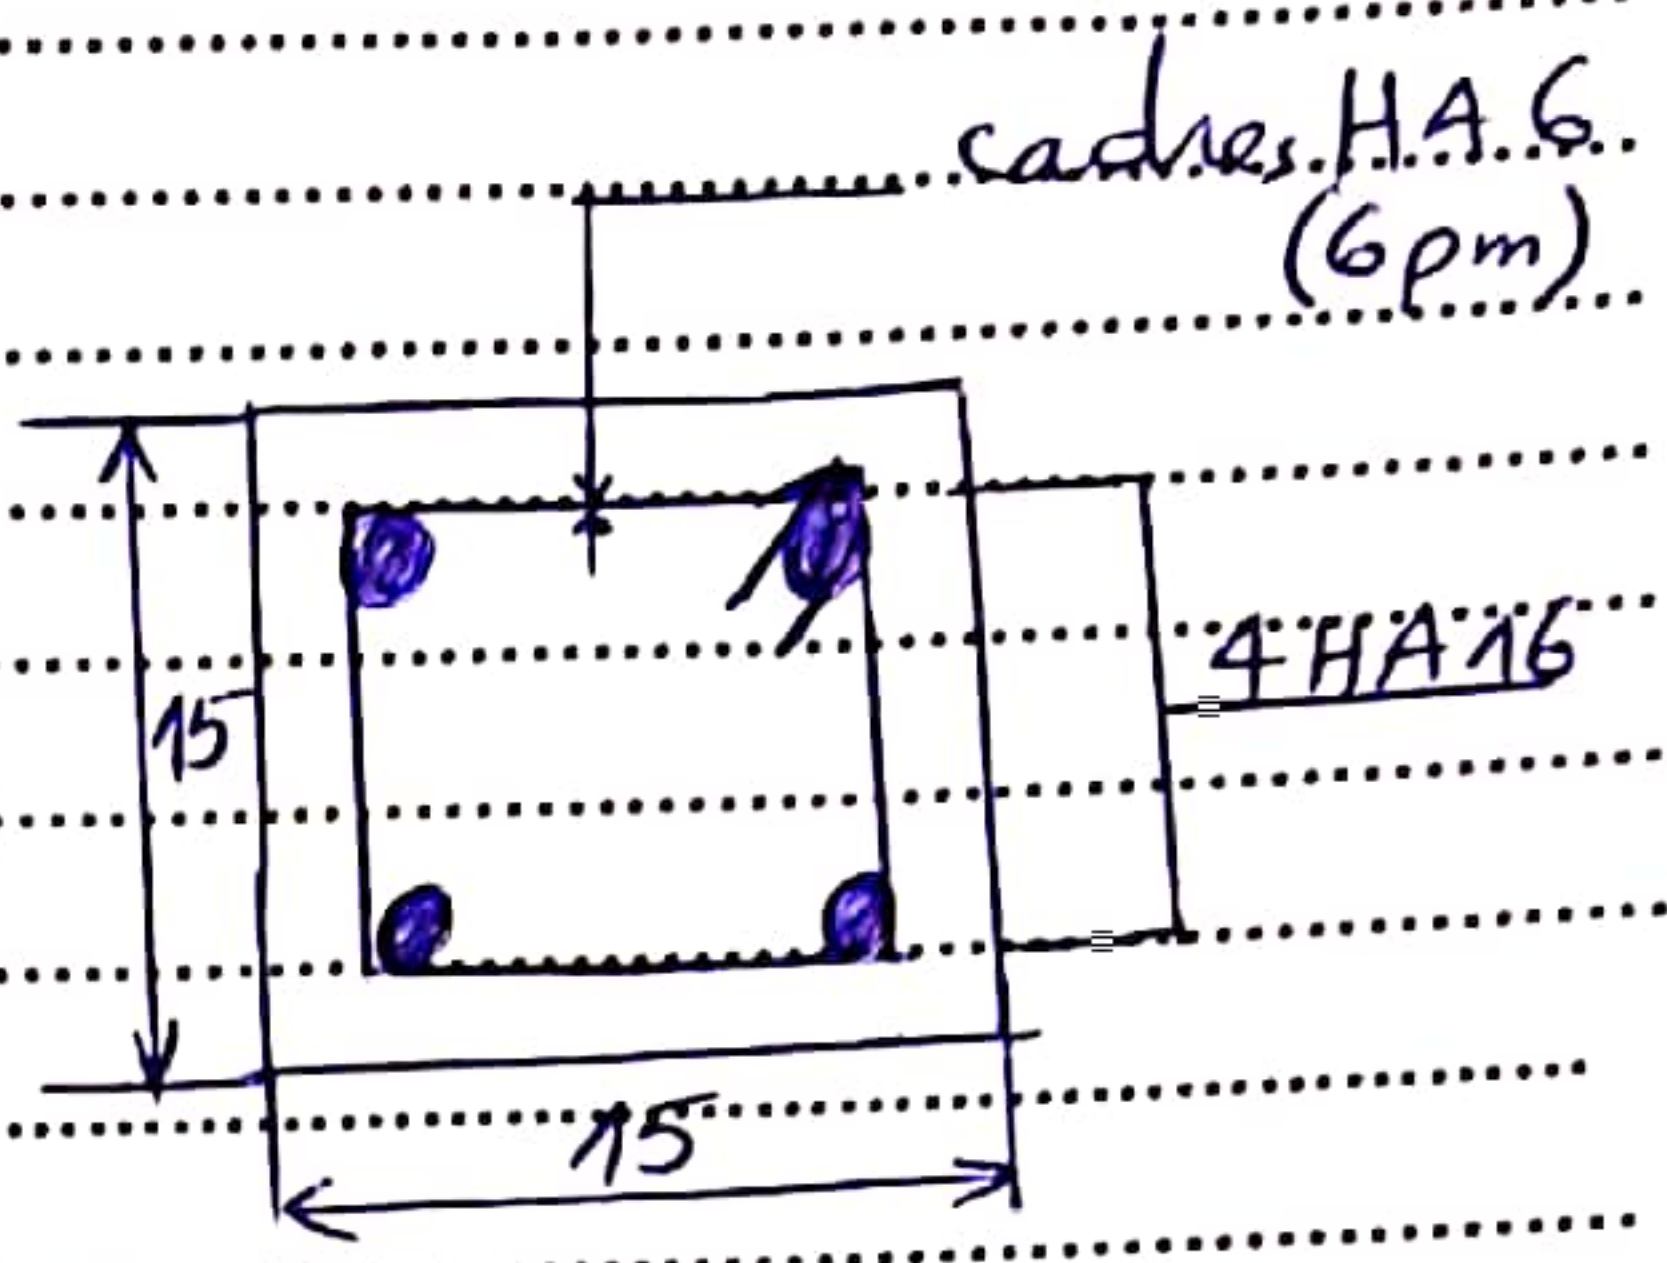 cadres HA 6
(6pm)
4HA16
15
15